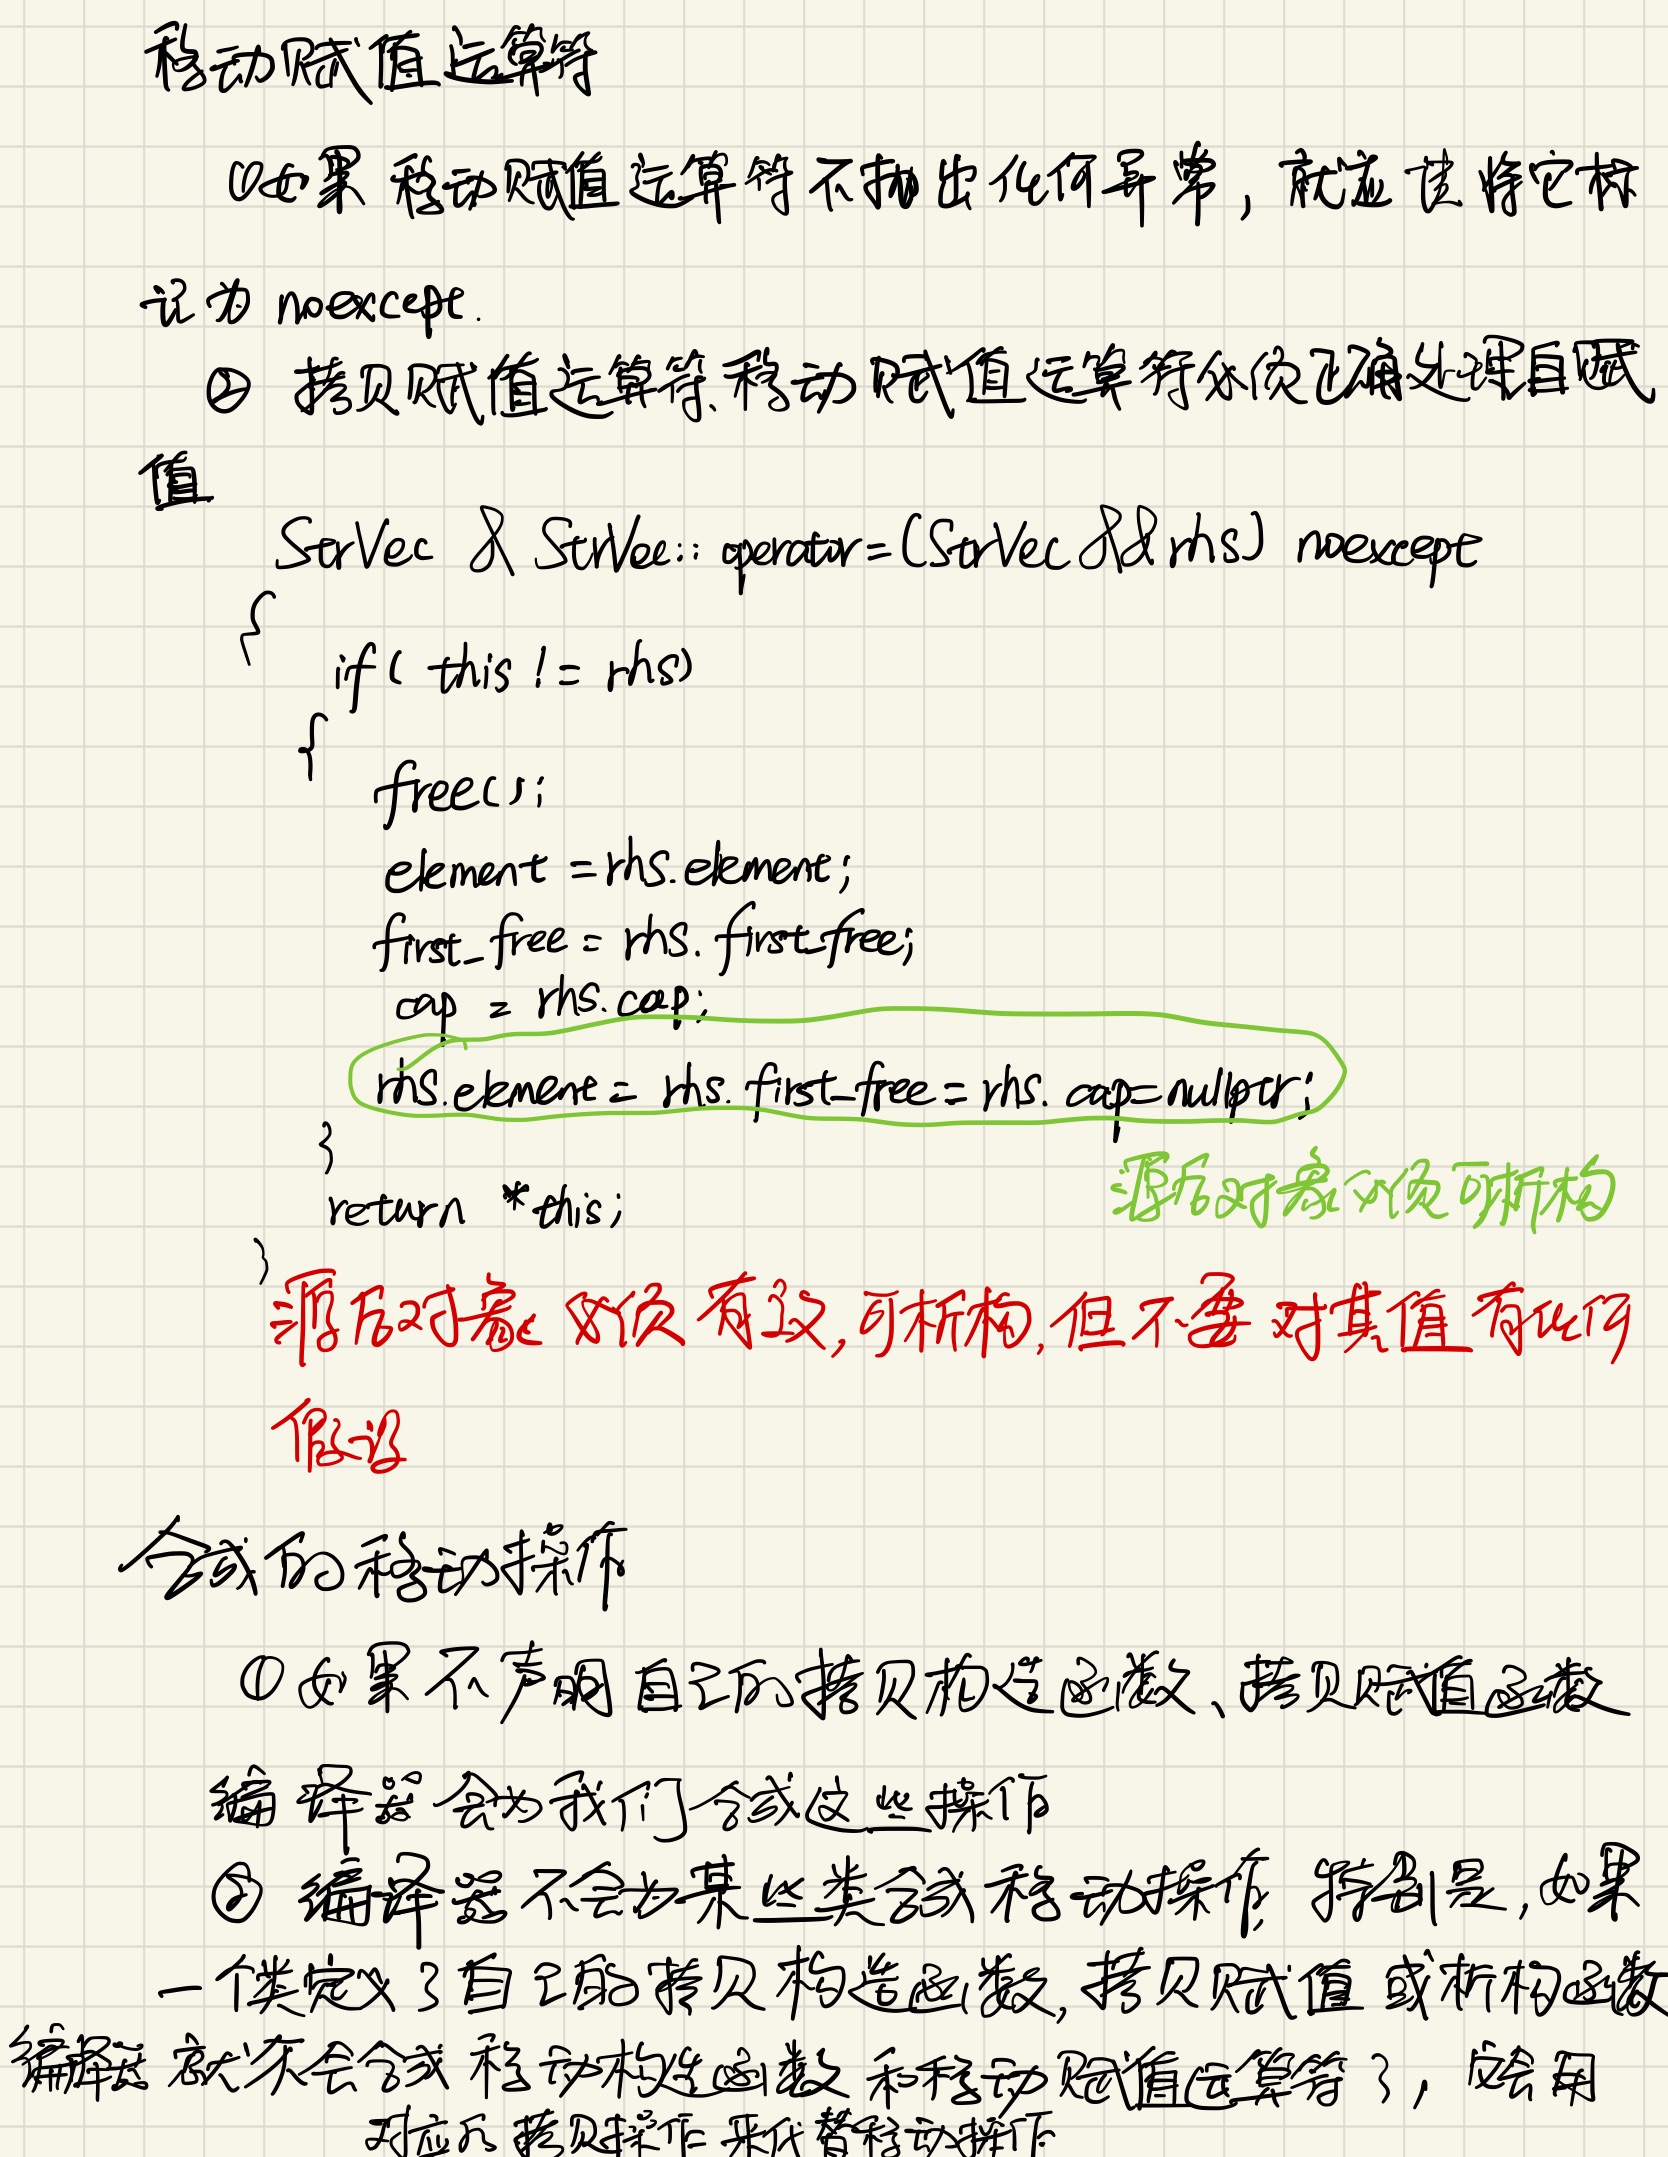 移动赋值运算符
①如果移动赋值运算符不抛出任何异常，就应该将它标
记为 noexcept.
② 拷贝赋值运算符、移动赋值运算符必须正确处理自赋
值
StrVec & StrVec:: operator=(StrVec &&rhs) noexcept
{
if( this != rhs)
{
free();
element = rhs.element;
first_free = rhs. first_free;
cap = rhs.cap;
rhs.element = rhs. first_free = rhs. cap=nullptr;
}
源后对象必须可析构
return *this;
}
源后对象必须有效,可析构,但不要对其值有任何
假设
合成的移动操作
①如果不声明自己的拷贝构造函数、拷贝赋值函数
编译器会为我们合成这些操作
② 编译器不会为某些类合成移动操作, 特别是,如果
一个类定义了自己的拷贝构造函数,拷贝赋值或析构函数
编译器就不会合成移动构造函数和移动赋值运算符了, 会用
对应的拷贝操作来代替移动操作